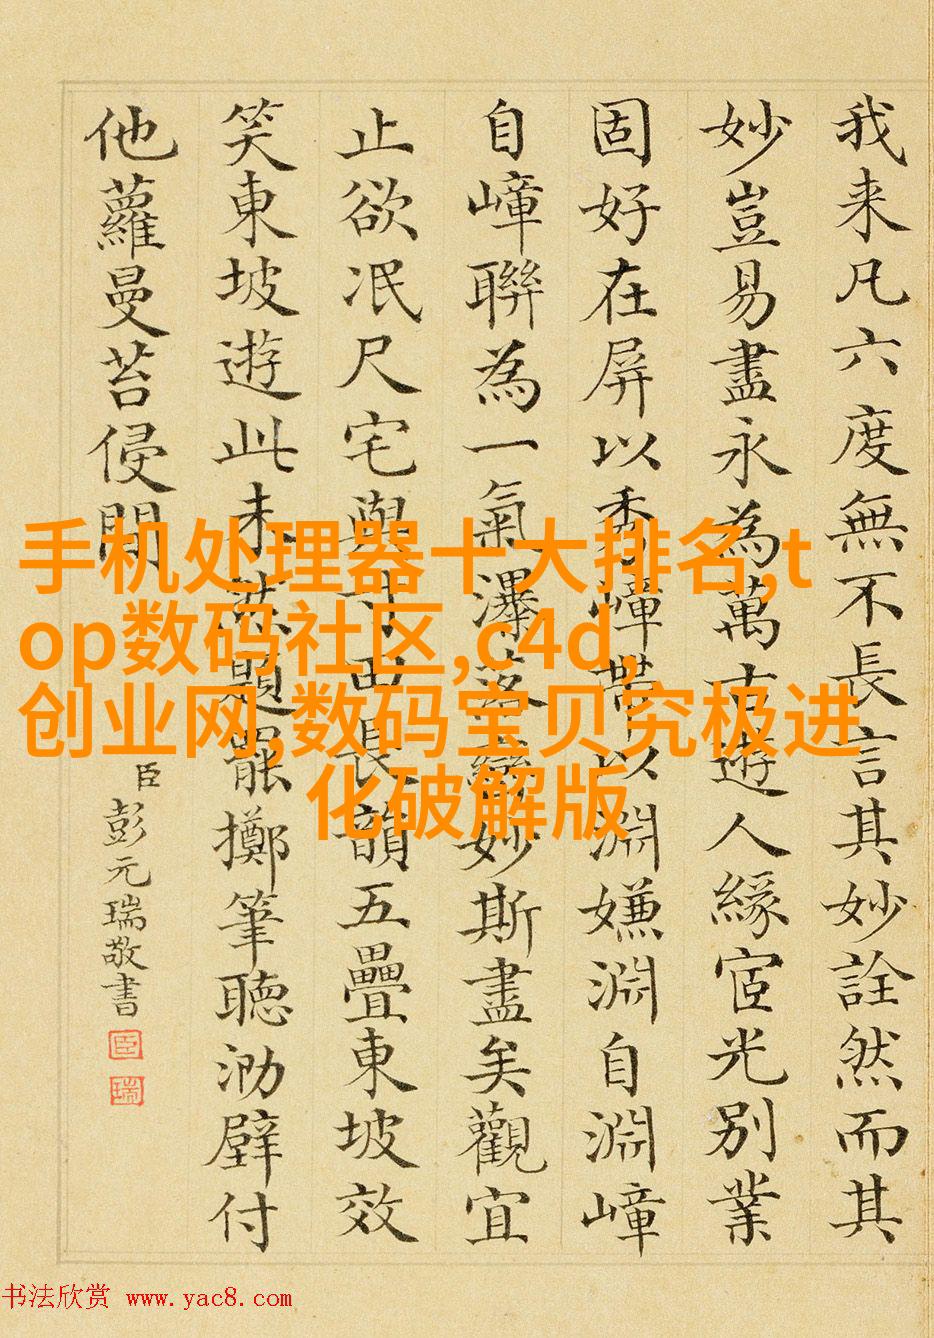 我来凡六度無不長言其妙詮然而其
妙豈易盡永為萬古遊人緣宦光別業
固好在屏以秀嶂帶以淵嫌淵自淵嶂
自嶂聯為一氣瀑落妙斯盡矣觀宜
止欲泯尺宅與寸長韻五疊東坡效
笑東坡遊此未題罷擲筆聽泐壁付
他蘿曼苔侵閒
臣彭元瑞敬書
臣
瑞
手机处理器十大排名,t
op数码社区,c4d,
创业网,数码宝贝究极进
化破解版
书法欣赏 www.yac8.com